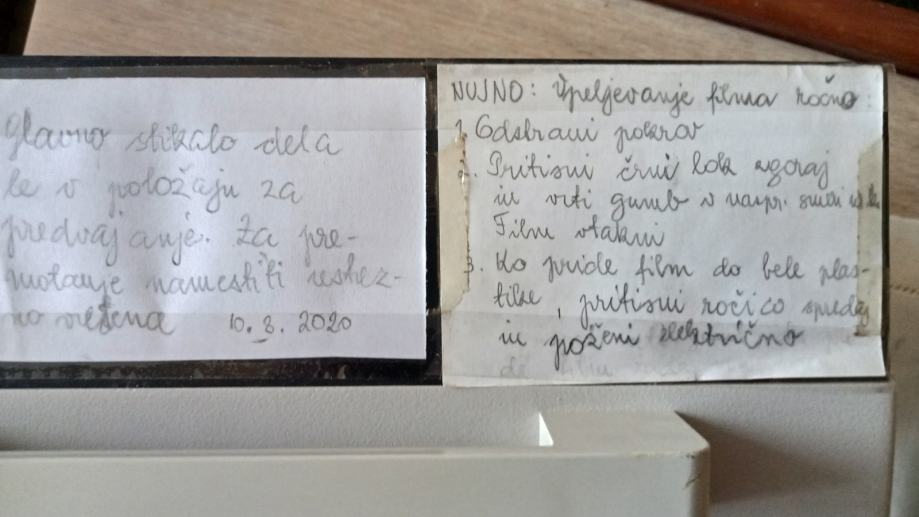 Glavno stikalo dela
le v položaju za
predvajanje. Za pre-
motanje namestiti ustrez-
no vreteno 10. 3. 2020
NUJNO: Vpeljevanje filma ročno:
1. Odstrani pokrov
2. Pritisni črni lok zgoraj
in vrti gumb v naspr. smeri
Film vtakni
3. Ko pride film do bele plas-
tike, pritisni ročico spredaj
in poženi električno